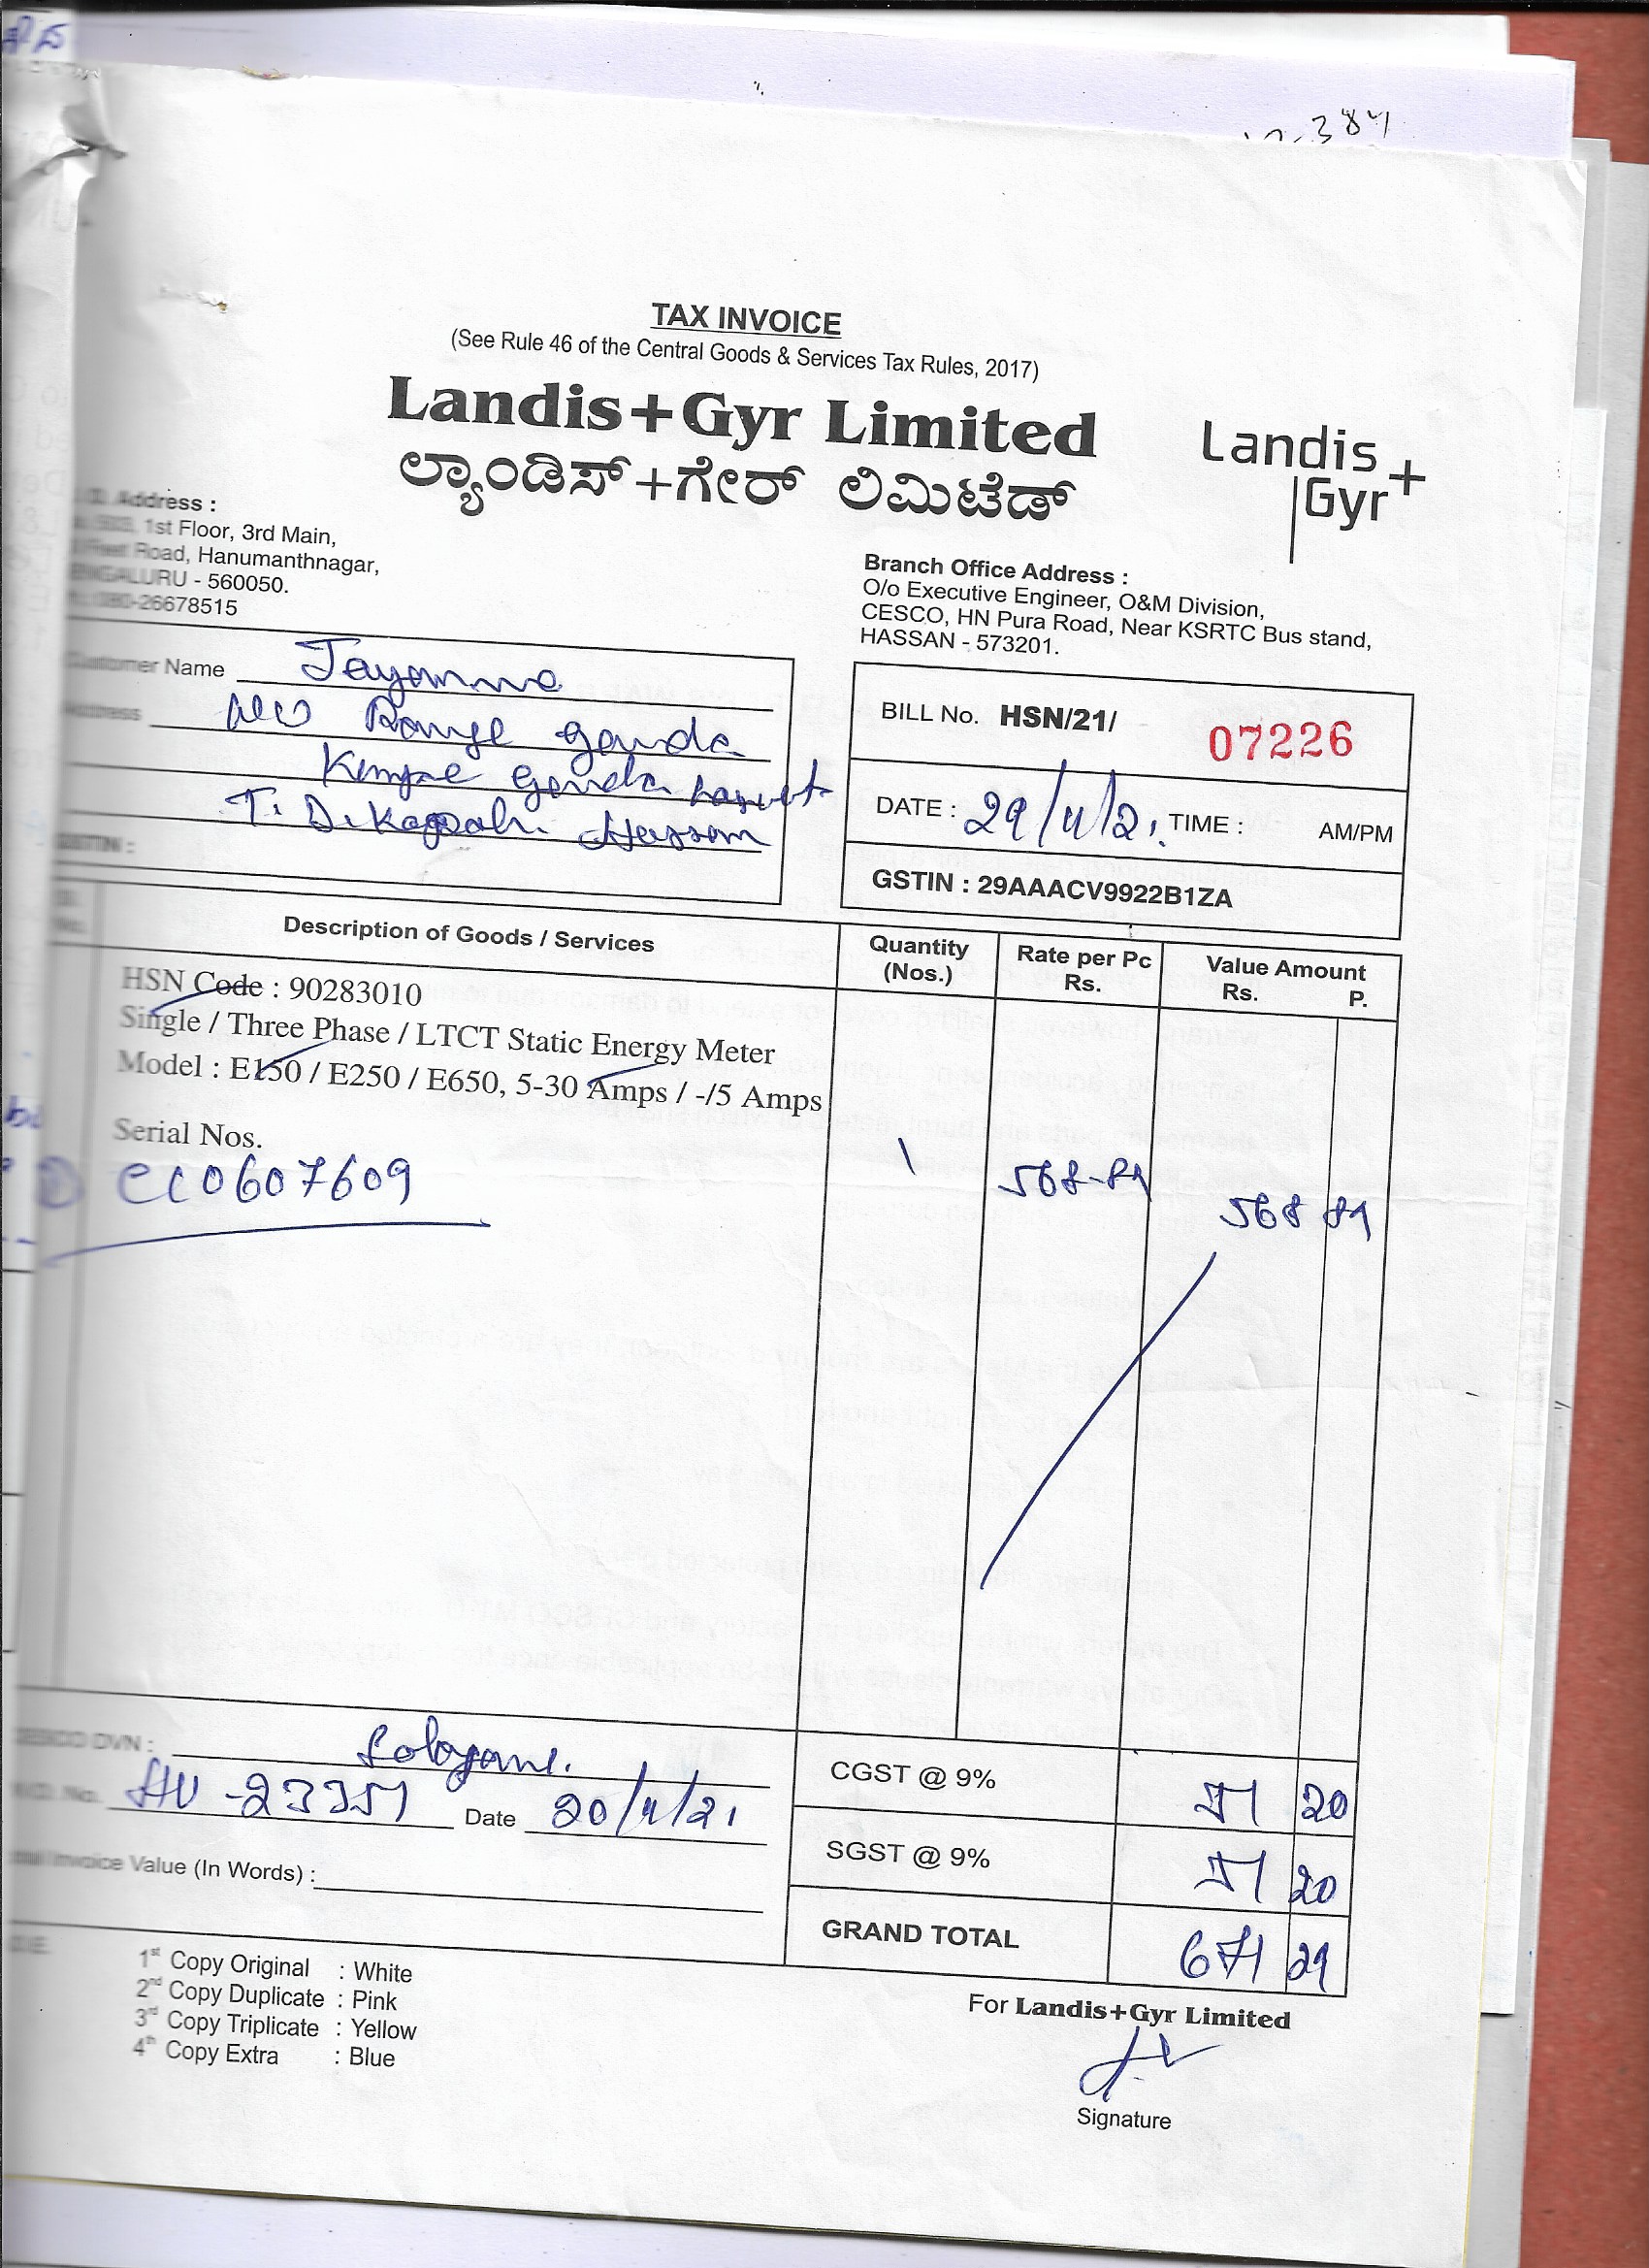 384
TAX INVOICE
(See Rule 46 of the Central Goods & Services Tax Rules, 2017)
Landis+Gyr Limited
ಲ್ಯಾಂಡಿಸ್+ಗೇರ್ ಲಿಮಿಟೆಡ್
Landis+
Gyr
Address :
1st Floor, 3rd Main,
Feet Road, Hanumanthnagar,
BENGALURU - 560050.
080-26678515
Branch Office Address :
O/o Executive Engineer, O&M Division,
CESCO, HN Pura Road, Near KSRTC Bus stand,
HASSAN - 573201.
Customer Name Jayamma
Address gouda
gouda
Hassan
GSTIN :
BILL No. HSN/21/ 07226
DATE : 29/11/21 TIME : AM/PM
GSTIN : 29AAACV9922B1ZA
Description of Goods / Services Quantity (Nos.) Rate per Pc Rs. Value Amount Rs. P.
HSN Code : 90283010
Single / Three Phase / LTCT Static Energy Meter
Model : E150 / E250 / E650, 5-30 Amps / -/5 Amps
Serial Nos.
0607609 1 568-89 568 89
CESCO DVN :
No. 23351 Date 20/11/21
Invoice Value (In Words) :
CGST @ 9% 51 20
SGST @ 9% 51 20
GRAND TOTAL 671 29
1st Copy Original : White
2nd Copy Duplicate : Pink
3rd Copy Triplicate : Yellow
4th Copy Extra : Blue
For Landis+Gyr Limited
Signature